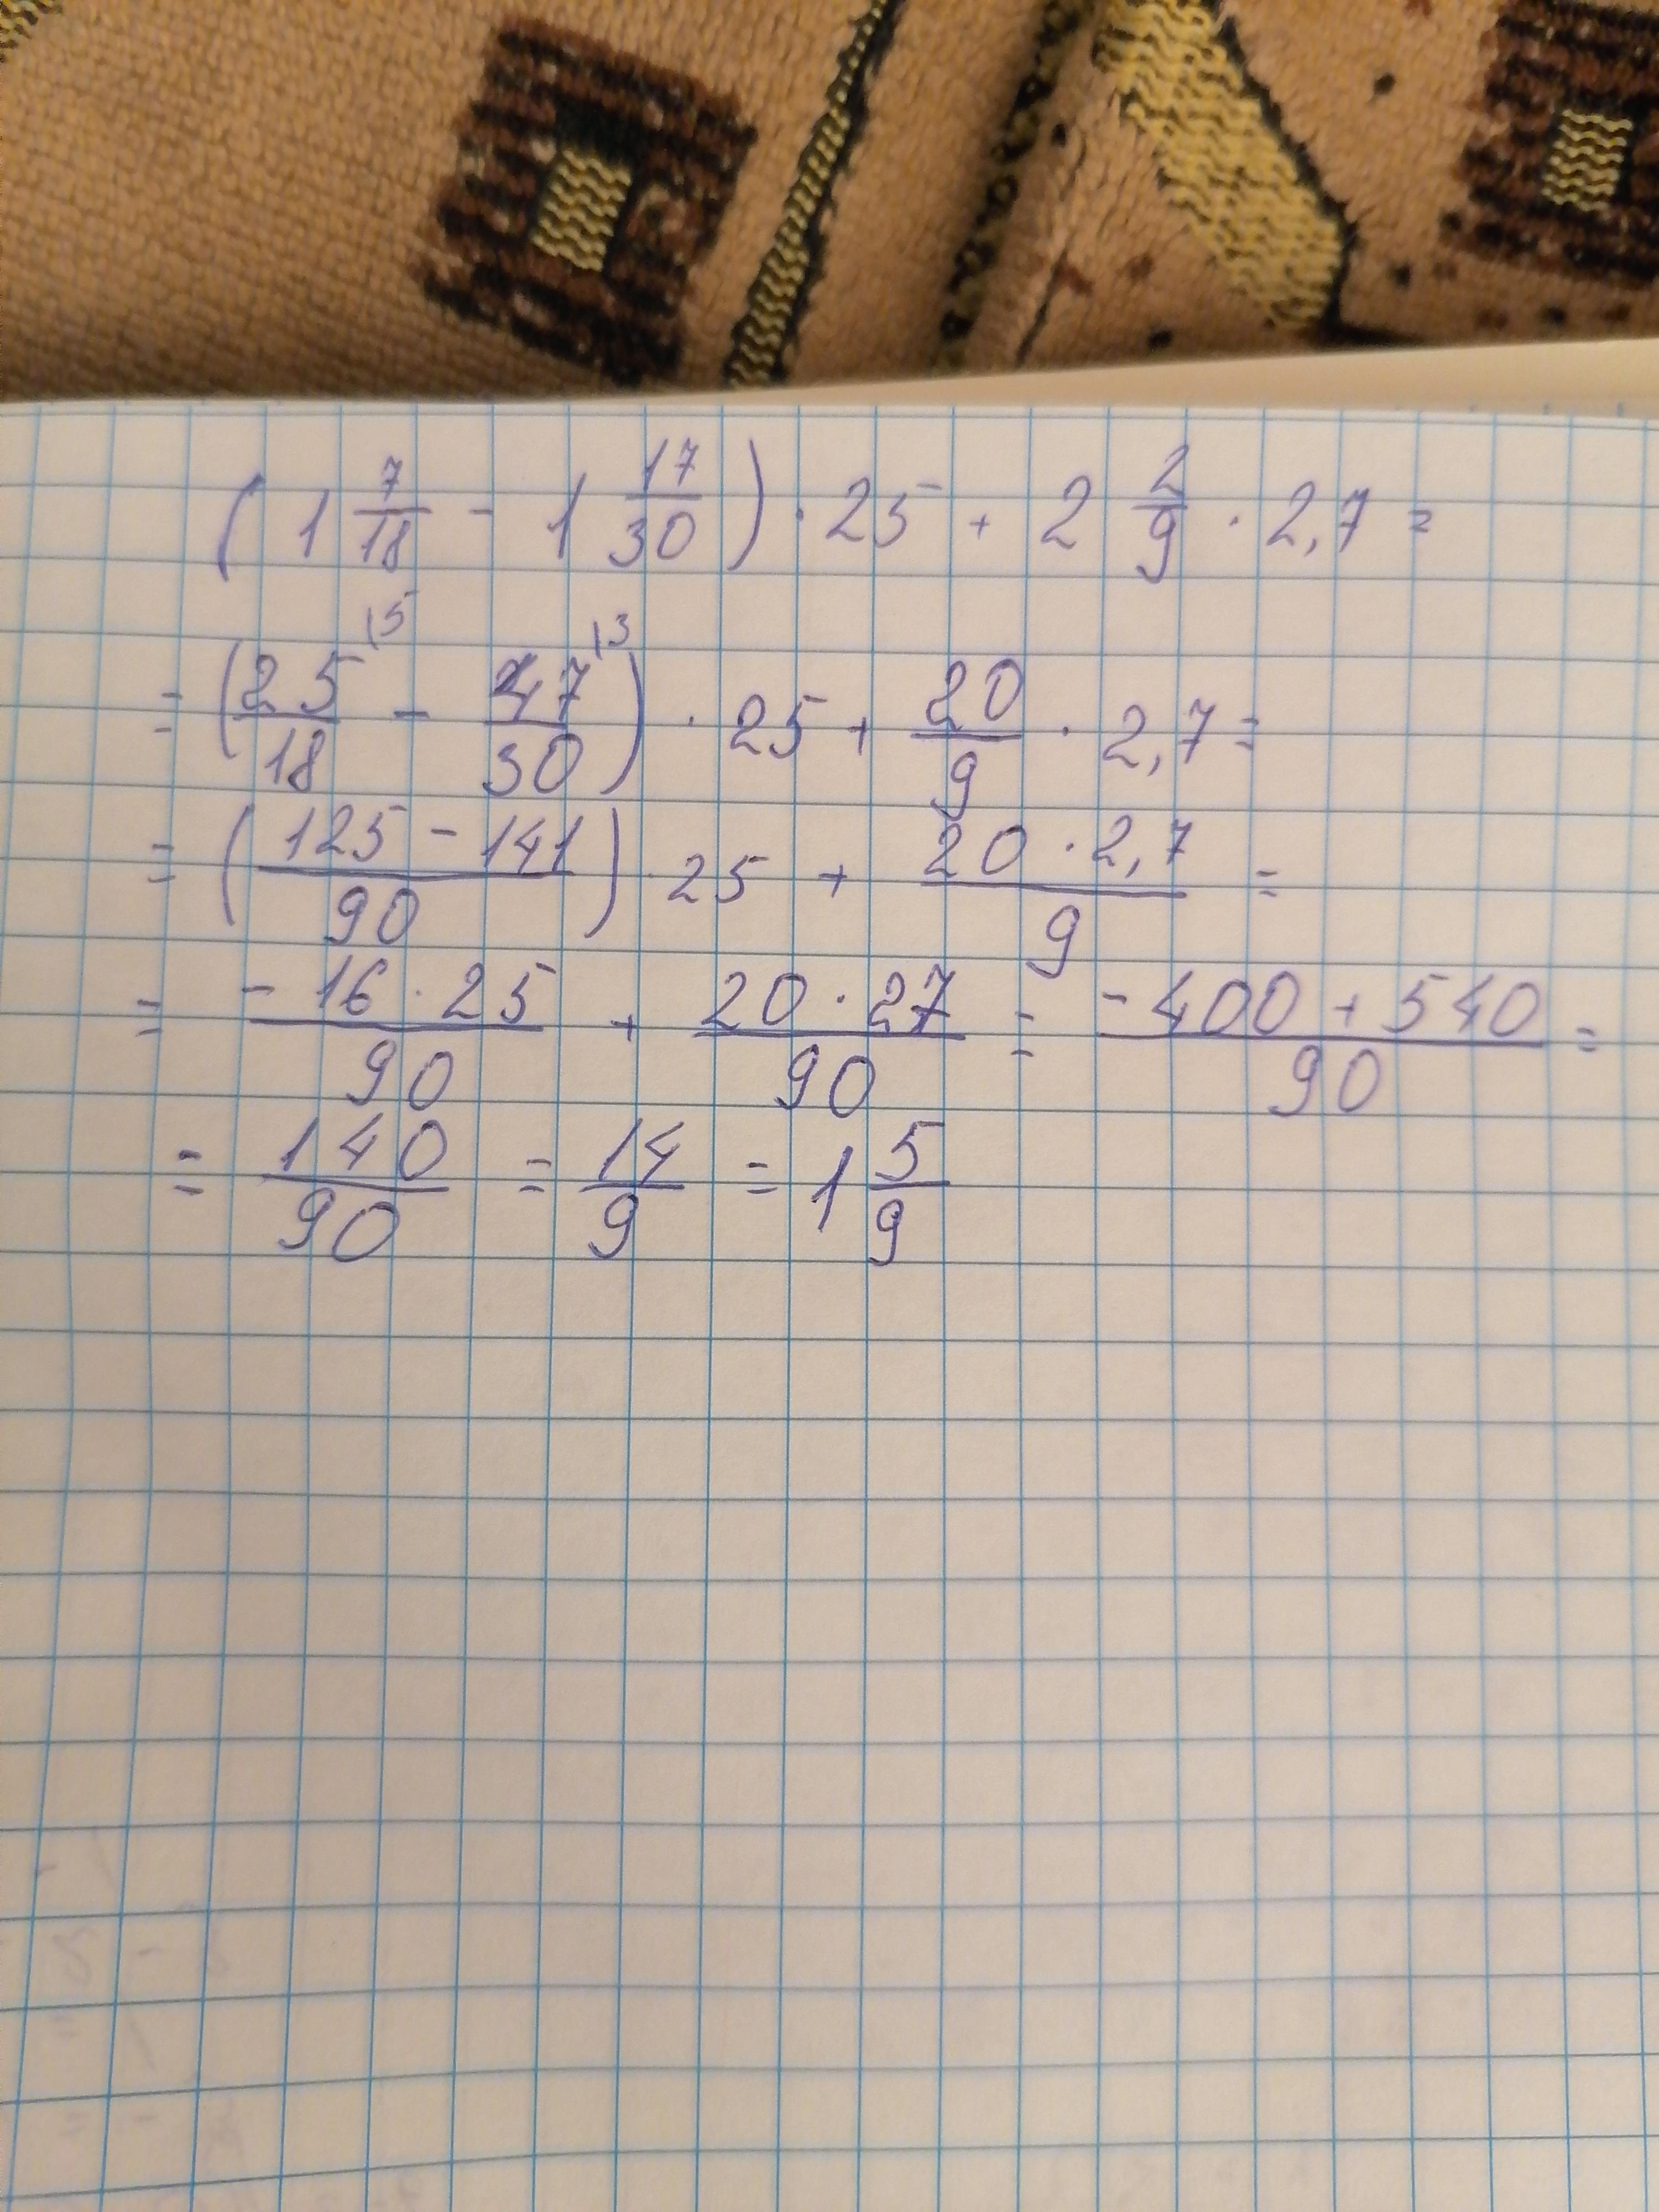 (1 7/18 - 1 17/30) · 25 + 2 2/9 · 2,7 =
= (25/18 \5 - 47/30 \3) · 25 + 20/9 · 2,7 =
= (125 - 141/90) · 25 + 20 · 2,7/9 =
= -16 · 25/90 + 20 · 27/90 = -400 + 540/90 =
= 140/90 = 14/9 = 1 5/9